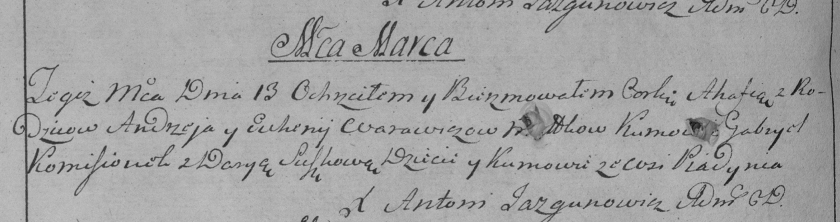 X Antoni Jazgunowicz Adm CD.
Mca Marca
Tegoż Mca Dnia 13 Ochrzciłem y Bierzmowałem Corkę Ahafię z Ro-
dzicow Andrzeja y Euhenij Warawiczow Kumowie Gabryel
Komisionek z Daryą Suszkową Dziecie y Kumowie ze wsi Piadynia
X Antoni Jazgunowicz Adm CD.